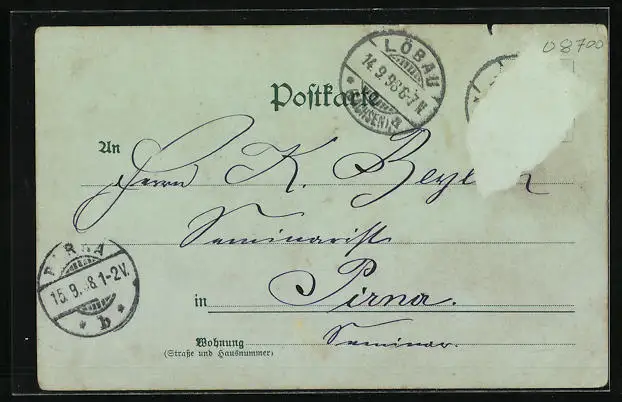 08700
LÖBAU
14.9.98 6-7N
(SACHSEN) a
Postkarte
An
Herrn K.
Seminarist
PIRNA
15.9.98. 1-2V.
* b *
in Pirna.
Wohnung Seminar.
(Straße und Hausnummer)